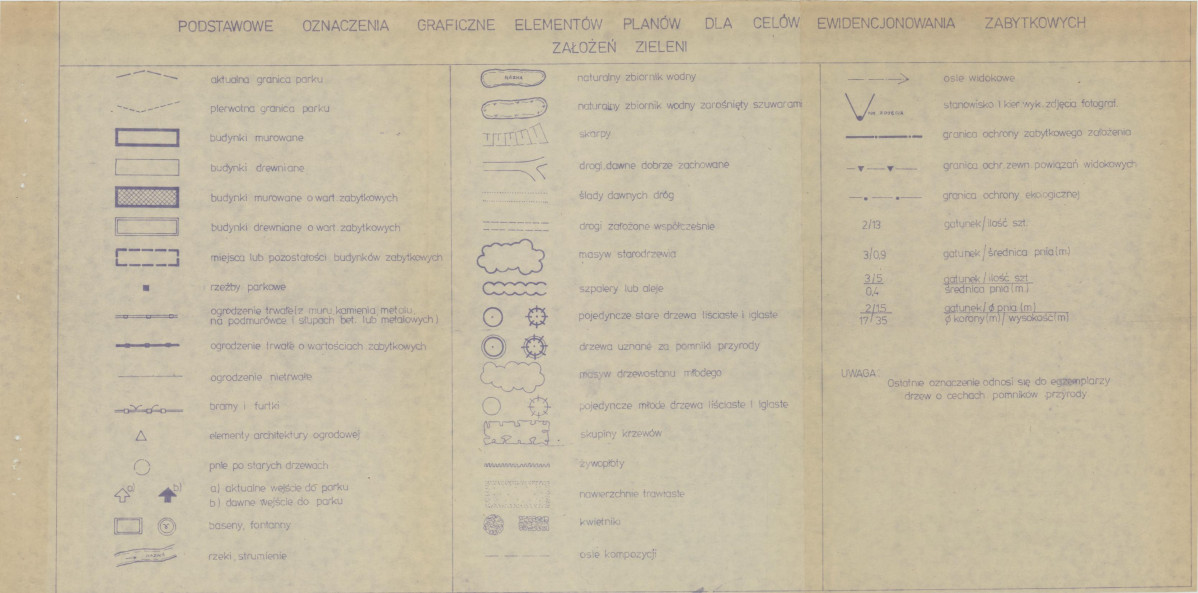 PODSTAWOWE OZNACZENIA GRAFICZNE ELEMENTÓW PLANÓW DLA CELÓW EWIDENCJONOWANIA ZABYTKOWYCH
ZAŁOŻEŃ ZIELENI
aktualna granica parku
pierwotna granica parku
budynki murowane
budynki drewniane
budynki murowane o wart. zabytkowych
budynki drewniane o wart. zabytkowych
miejsca lub pozostałości budynków zabytkowych
rzeźby parkowe
ogrodzenie trwałe (z muru, kamienia, metalu,
na podmurówce i słupach bet. lub metalowych)
ogrodzenie trwałe o wartościach zabytkowych
ogrodzenie nietrwałe
bramy i furtki
elementy architektury ogrodowej
pnie po starych drzewach
a) b)
a) aktualne wejście do parku
b) dawne wejście do parku
baseny, fontanny
rzeki, strumienie
naturalny zbiornik wodny
naturalny zbiornik wodny zarośnięty szuwarami
skarpy
drogi dawne dobrze zachowane
ślady dawnych dróg
drogi założone współcześnie
masyw starodrzewia
szpalery lub aleje
pojedyncze stare drzewa liściaste i iglaste
drzewa uznane za pomniki przyrody
masyw drzewostanu młodego
pojedyncze młode drzewa liściaste i iglaste
skupiny krzewów
żywopłoty
nawierzchnie trawiaste
kwietniki
osie kompozycji
osie widokowe
stanowisko i kier. wyk. zdjęcia fotograf.
granica ochrony zabytkowego założenia
granica ochr. zewn. powiązań widokowych
granica ochrony ekologicznej
2/13 gatunek/ilość szt.
3/0,9 gatunek/średnica pnia (m)
3/5 gatunek/ilość szt.
0,4 średnica pnia (m)
2/1,5 gatunek/ø pnia (m)
17/35 ø korony (m)/wysokość (m)
UWAGA:
Ostatnie oznaczenie odnosi się do egzemplarzy
drzew o cechach pomników przyrody